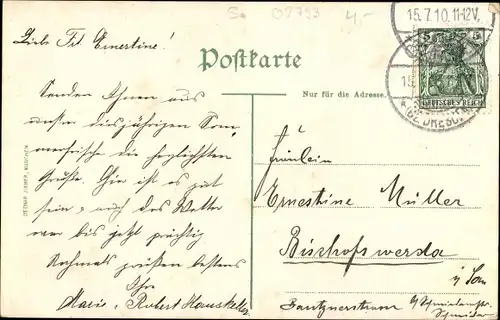 So 02793 4,-
15.7.10. 11-12V.
Liebe Frl. Ernestine!
Postkarte
5 5
DEUTSCHES REICH
Nur für die Adresse.
Senden Ihnen aus
unsrer diesjährigen Som
merfrische die herzlichsten
Grüße. Hier ist es gut
sein, auch das Wetter
war bis jetzt prächtig
Nochmals grüßen bestens
Ihre
Marie u. Robert
Fräulein
Ernestine Müller
Bischofswerda
i/ Sa
Bautznerstrasse
OTTMAR ZIEHER, MÜNCHEN